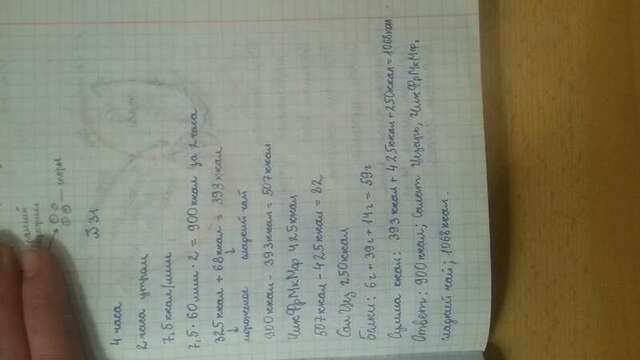 №31
4 часа
2 часа утром
7,5 ккал/мин
7,5 · 60 мин · 2 = 900 ккал за 2 часа
325 ккал + 68 ккал = 393 ккал
мороженое сладкий чай
900 ккал - 393 ккал = 507 ккал
ЧикФрМкМф 425 ккал
507 ккал - 425 ккал = 82
Сал Цез 250 ккал
Белки: 6г + 39г + 14г = 59г
Сумма ккал: 393 ккал + 425 ккал + 250 ккал = 1068 ккал.
Ответ: 900 ккал; Салат Цезарь, ЧикФрМкМф,
сладкий чай; 1068 ккал.